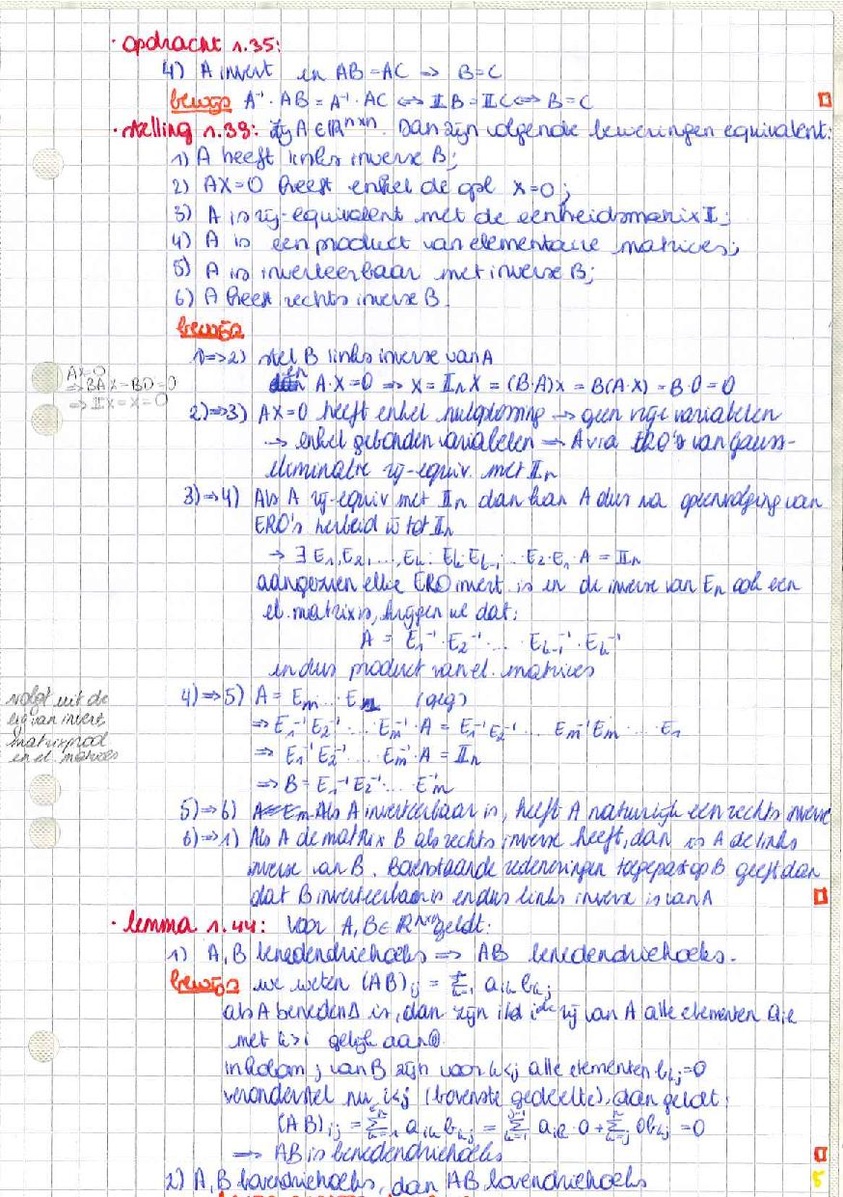 · opdracht 1.35:
4) A invert en AB = AC ⇒ B=C
bewijs A⁻¹·AB = A⁻¹·AC ⇔ 𝕀B = 𝕀C ⇔ B=C
· stelling 1.38: zij A ∈ ℝⁿˣⁿ. Dan zijn volgende beweringen equivalent:
1) A heeft links inverse B;
2) AX=0 heeft enkel de opl X=0;
3) A is rij-equivalent met de eenheidsmatrix 𝕀;
4) A is een product van elementaire matrices;
5) A is inverteerbaar met inverse B;
6) A heeft rechts inverse B.
bewijs
1)⇒2) stel B links inverse van A
en A·X=0 ⇒ X = 𝕀ₙX = (B·A)X = B(A·X) = B·0 = 0
AX=0
⇒ BAX = B0 = 0
⇒ 𝕀X = X = 0
2)⇒3) AX=0 heeft enkel nuloplossing → geen vrije variabelen
→ enkel gebonden variabelen → A via ERO's van Gauss-
eliminatie rij-equiv. met 𝕀ₙ
3)⇒4) Als A rij-equiv met 𝕀ₙ dan kan A dus na opeenvolging van
ERO's herleid w tot 𝕀ₙ
→ ∃ E₁,E₂,...,Eₖ: Eₖ·Eₖ₋₁...E₂·E₁·A = 𝕀ₙ
aangezien elke ERO invert is en de inverse van Eₙ ook een
el. matrix is, krijgen we dat:
A = E₁⁻¹·E₂⁻¹·...·Eₖ₋₁⁻¹·Eₖ⁻¹
en dus product van el. matrices
4)⇒5) A = Eₘ...E₁ (geg)
⇒ E₁⁻¹E₂⁻¹...Eₘ⁻¹·A = E₁⁻¹E₂⁻¹...Eₘ⁻¹Eₘ...·E₁
⇒ E₁⁻¹E₂⁻¹...Eₘ⁻¹·A = 𝕀ₙ
⇒ B = E₁⁻¹E₂⁻¹...Eₘ⁻¹
volgt uit de
eig van invert,
matrixprod
en el. matrices
5)⇒6) Als A inverteerbaar is, heeft A natuurlijk een rechts inverse
6)⇒1) Als A de matrix B als rechts inverse heeft, dan is A de links
inverse van B. Bovenstaande redeneringen toegepast op B geeft dan
dat B inverteerbaar is en dus links inverse is van A
· lemma 1.44: Voor A,B ∈ ℝⁿˣⁿ geldt:
1) A,B benedendriehoeks ⇒ AB benedendriehoeks.
bewijs we weten (AB)ᵢⱼ = Σ aᵢₖbₖⱼ
als A beneden∆ is, dan zijn i'd iᵈᵉ rij van A alle elementen aᵢₖ
met k>i gelijk aan 0
in kolom j van B zijn voor k<j alle elementen bₖⱼ=0
veronderstel nu i<j (bovenste gedeelte), dan geldt:
(AB)ᵢⱼ = Σ aᵢₖbₖⱼ = Σ aᵢₖ·0 + Σ 0bₖⱼ = 0
⇒ AB is benedendriehoeks
2) A,B bovendriehoeks, dan AB bovendriehoeks
5